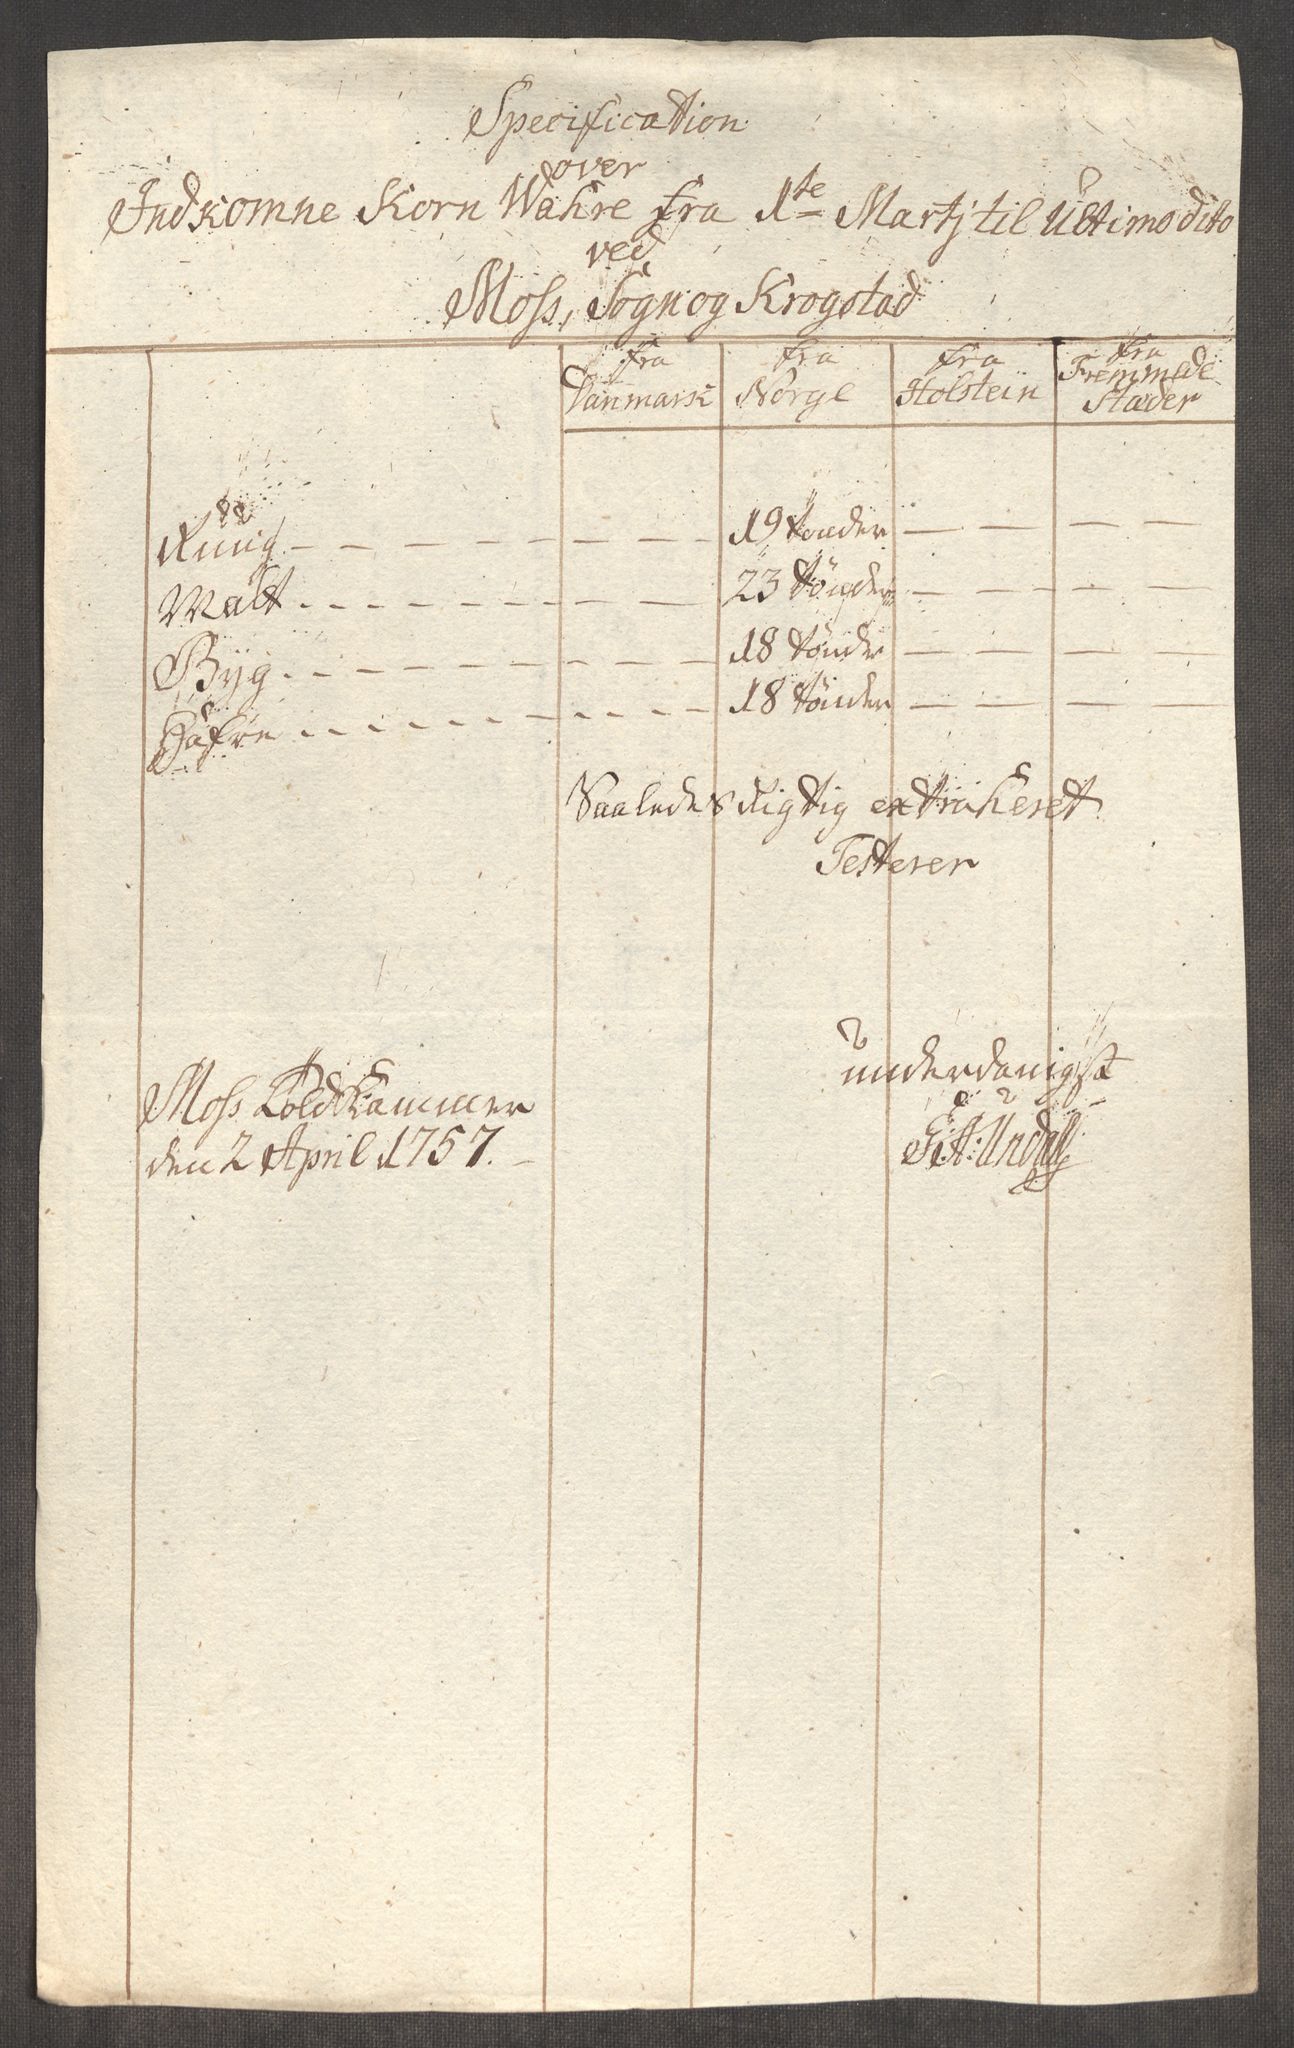 Specification
over
Indkomne Korn Wahre fra 1te Martj til Ultimo dito
ved
Moss, Sogn og Krogstad
fra Danmark fra Norge fra Holstein fra Fremmede Stæder
Ruug - - - - - - - 19 tønder - - - -
Malt - - - - - - - 23 tønder - - - -
Byg - - - - - - - 18 tønder - - - -
Hafre - - - - - - - 18 tønder - - - -
Saaledes Rigtig extraheret
Testerer
underdanigst
Moss Toldkammer
den 2 April 1757.